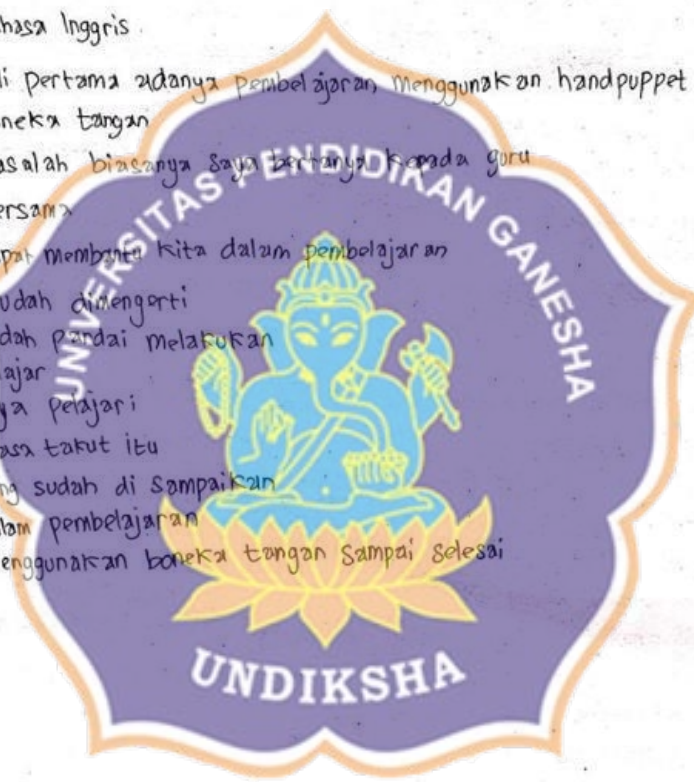 hasa Inggris.
li pertama adanya pembelajaran menggunakan handpuppet
neka tangan
asalah biasanya saya bertanya kepada guru
ersama
pat membantu kita dalam pembelajaran
udah dimengerti
dah pandai melakukan
ajar
ya pelajari
asa takut itu
ng sudah di sampaikan
lam pembelajaran
enggunakan boneka tangan sampai selesai
UNIVERSITAS PENDIDIKAN GANESHA
UNDIKSHA